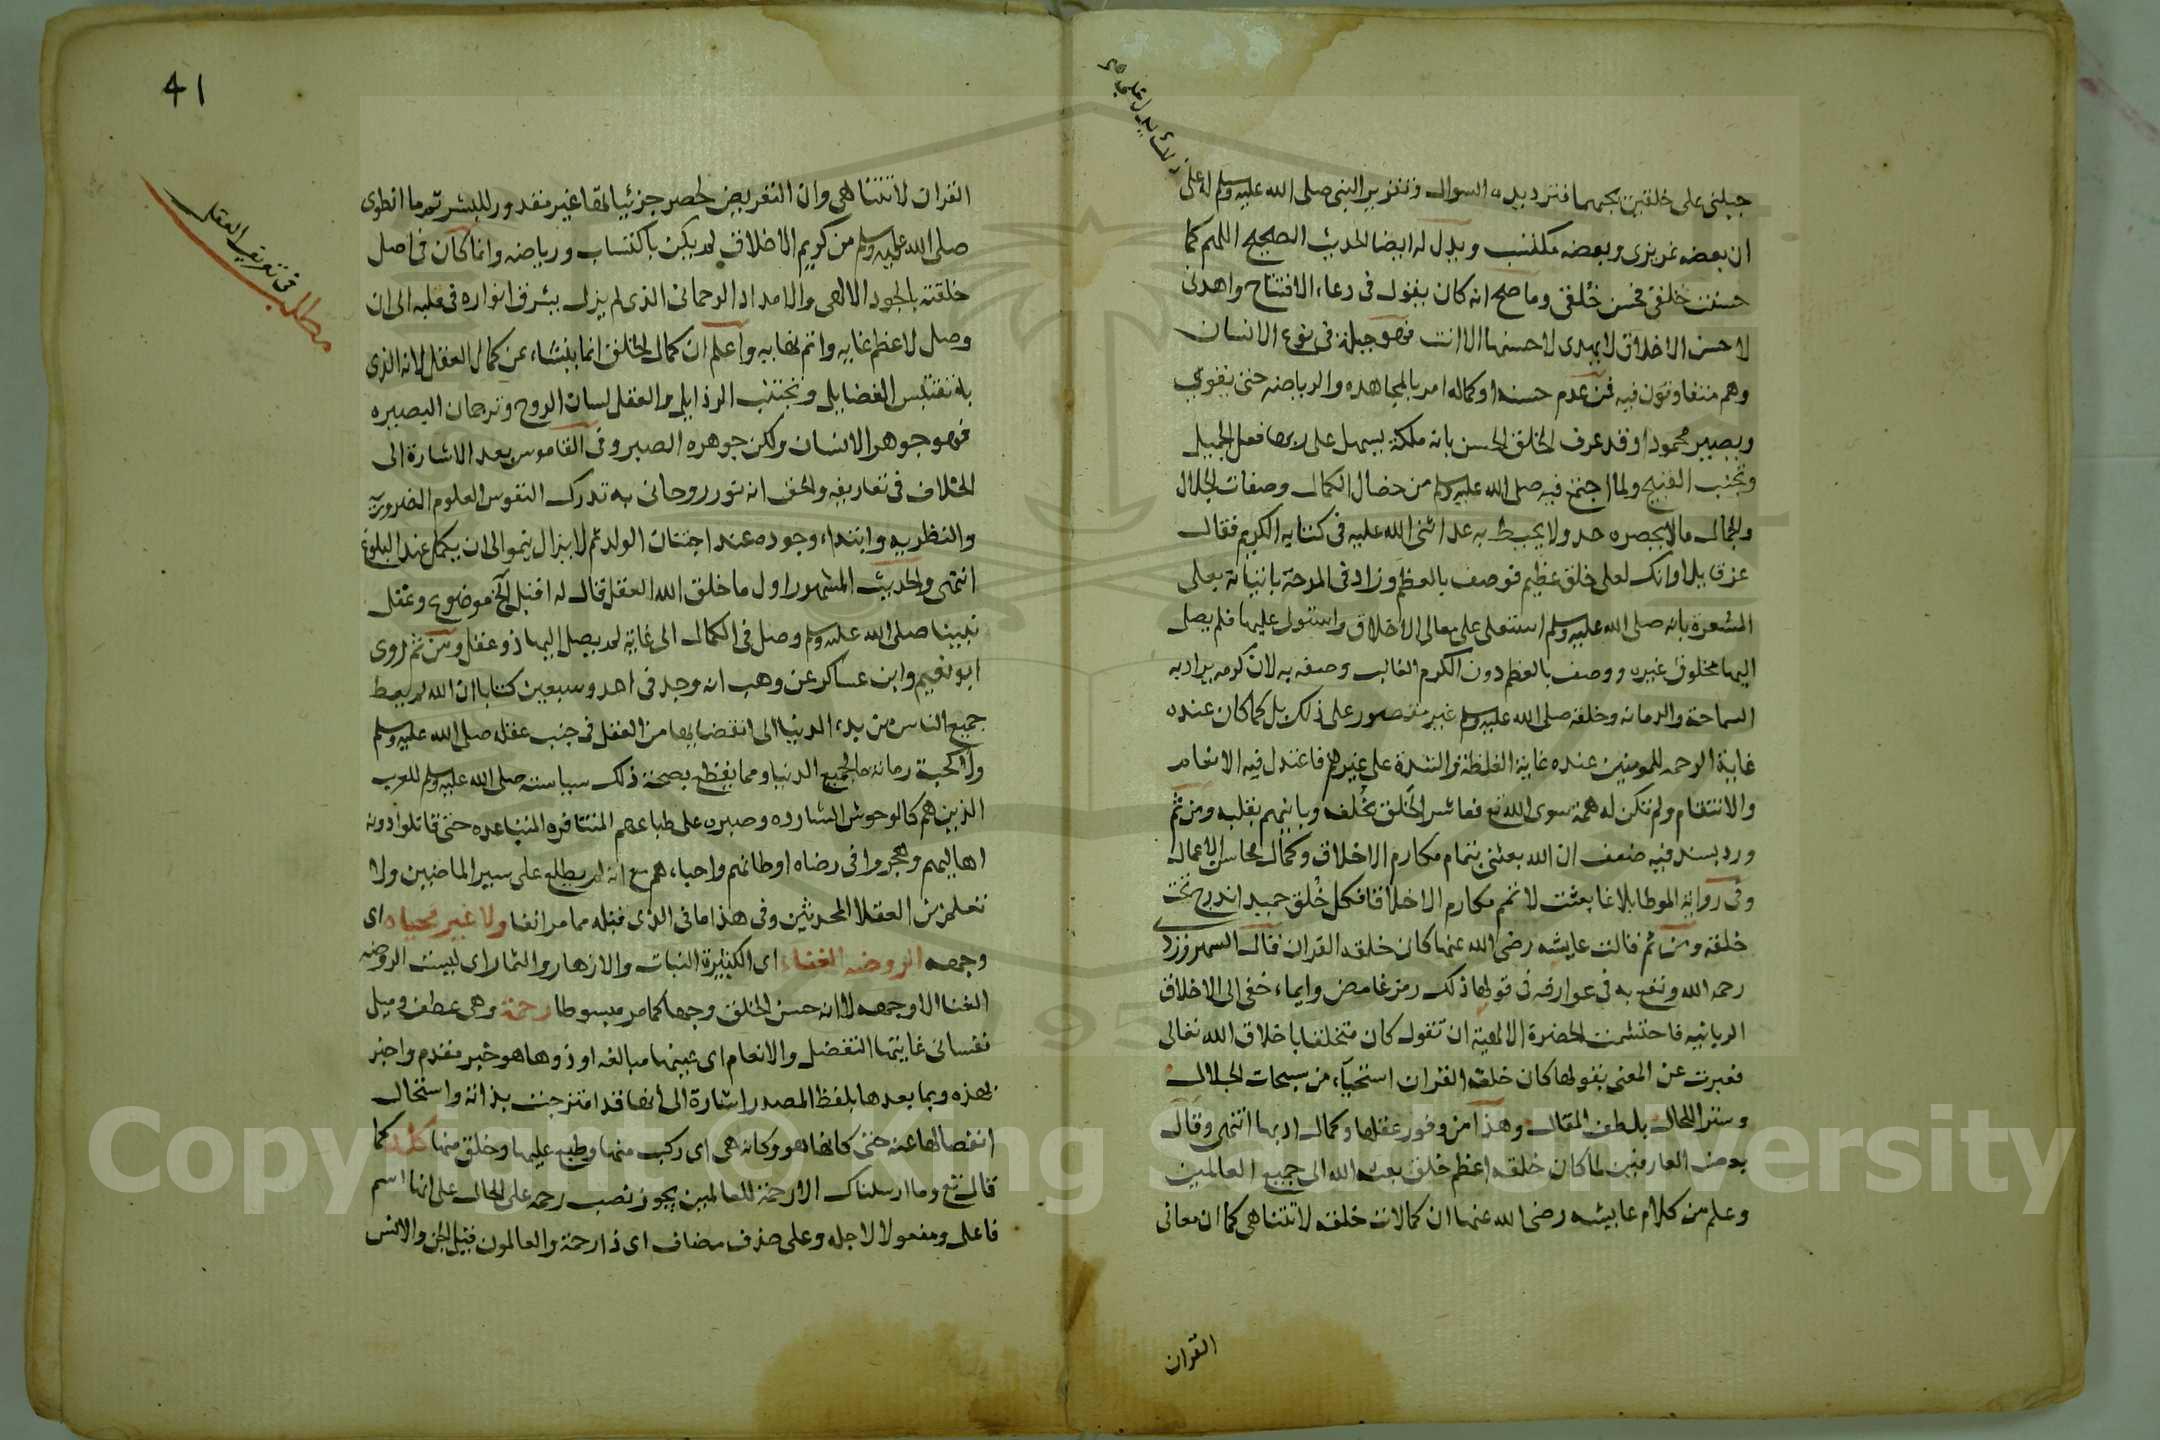 ذلك يدل على
جبلني على خلقين يحبهما فترديده السوال وتقرير النبي صلى الله عليه وسلم له على
ان بعضه غريزي وبعضه مكتسب ويدل له ايضا الحديث الصحيح اللهم كما
حسنت خلقي فحسن خُلقي وما صح انه كان يقول في دعاء الافتتاح واهدني
لاحسن الاخلاق لا يهدي لاحسنها الا انت فهو جبلة في نوع الانسان
وهم متفاوتون فيه فمن عدم حسنه او كماله امر بالمجاهده والرياضه حتى يقوى
ويصير محمودا وقد عرف الخلق الحسن بانه ملكة يسهل على ربها فعل الجميل
وتجنب القبيح ولما اجتمع فيه صلى الله عليه وسلم من خصال الكمال وصفات الجلال
والجمال ما لا يحصره حد ولا يحيط به عد اثنى الله عليه في كتابه الكريم فقال
عز قايلا وانك لعلى خلق عظيم فوصف بالعظم وزاد في المدحة باتيانه بعلى
المشعرة بانه صلى الله عليه وسلم استعلى على معالي الاخلاق واستولى عليها فلم يصل
اليها مخلوق غيره ووصف بالعظم دون الكرم الغالب وصفه به لان كرمه يراد به
السماحة والدماثه وخلقه صلى الله عليه وسلم غير مقصور على ذلك بل كما كان عنده
غاية الرحمه للمومنين عنده غاية الغلظة والشدة على غيرهم فاعتدل فيه الانعام
والانتقام ولم تكن له همة سوى الله تع فعاشر الخلق بخُلقه وباينهم بقلبه ومن ثم
ورد بسند فيه ضعف ان الله بعثني بتمام مكارم الاخلاق وكمال محاسن الاعمال
وفي رواية الموطا بلاغا بعثت لاتمم مكارم الاخلاق فكل خُلق حميد اندرج تحت
خلقه ومن ثم قالت عايشه رضي الله عنها كان خلقه القران قال السهروزدي
رحمه الله ونفع به في عوارفه في قولها ذلك رمز غامض وايماء خفي الى الاخلاق
الربانيه فاحتشمت الحضرة الالهية ان تقول كان متخلقا باخلاق الله تعالى
فعبرت عن المعنى بقولها كان خلقه القران استحياء من سبحات الجلال
وسترا للحال بلطف المقال وهذا من وفور عقلها وكمال ادبها انتهى وقال
بعض العارفين لما كان خلقه اعظم خلق بعثه الله الى جميع العالمين
وعلم من كلام عايشه رضي الله عنها ان كمالات خلقه لا تتناهى كما ان معاني
القران
41
مطلب في تعريف العقل
القران لا تتناهى وان التعريض لحصر جزئياتها غير مقدور للبشر ثم ما انطوى
صلى الله عليه وسلم من كريم الاخلاق لم يكن باكتساب ورياضه وانما كان في اصل
خلقته بالجود الالهي والامداد الرحماني الذي لم يزل يشرق انواره في قلبه الى ان
وصل لاعظم غايه واتم نهايه واعلم ان كمال الخلق انما ينشاء عن كمال العقل لانه الذي
به تقتبس الفضايل وتجتنب الرذايل والعقل لسان الروح وترجمان البصيره
فهو جوهر الانسان ولكن جوهره الصبر وفي القاموس بعد الاشارة الى
الخلاف في تعاريفه والحق انه نور روحاني به تدرك النفوس العلوم الضرورية
والنظريه وابتداء وجوده عند اجتنان الولد ثم لا يزال ينمو الى ان يكمل عند البلوغ
انتهى والحديث المشهور اول ما خلق الله العقل فقال له اقبل الخ موضوع وعقل
نبينا صلى الله عليه وسلم وصل في الكمال الى غاية لم يصل اليها ذو عقل ومن ثم روى
ابو نعيم وابن عساكر عن وهب انه وجد في احد وسبعين كتابا ان الله لم يعط
جميع الناس من بدء الدنيا الى انقضايها من العقل في جنب عقله صلى الله عليه وسلم
الا كحبة رمانة مالجميع الدنيا ومما يقطع بصحة ذلك سياسته صلى الله عليه وسلم للعرب
الذين هم كالوحوش الشارده وصبره على طباعهم المتنافره المتباعده حتى قاتلوا دونه
اهاليهم وهجروا في رضاه اوطانهم واحباءهم مع انه لم يطلع على سير الماضيين ولا
تعلم من العقلا المحدثين وفي هذا ما في الذي قبله مما مر انفا ولا غير محياه اي
وجهه الروضه الغناء اي الكثيرة النبات والازهار والثمار اي ليست الروضه
الغنا الا وجهه لا انه حسن الخلق وجها كما مر مبسوطا رحمة وهي عطف وميل
نفساني غايتها التفضل والانعام اي عينها مبالغه او ذو هاهو خبر مقدم واخبر
بهذه وبما بعدها بلفظ المصدر اشارة الى انها قد امتزجت بذاته واستحال
انفصالها عنه حتى كانها هو وكانه هي اي ركب منها وطبع عليها وخلق منها كله كما
قال تع وما ارسلناك الا رحمة للعالمين يجوز نصب رحمه على الحال على انها اسم
فاعل ومفعولا لاجله وعلى حذف مضاف اي ذا رحمة والعالمون قيل الجن والانس
Copyright © King Saud University